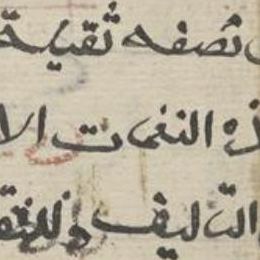 نصفه ثقيلة
ذه النغمات الا
التاليف وللنق